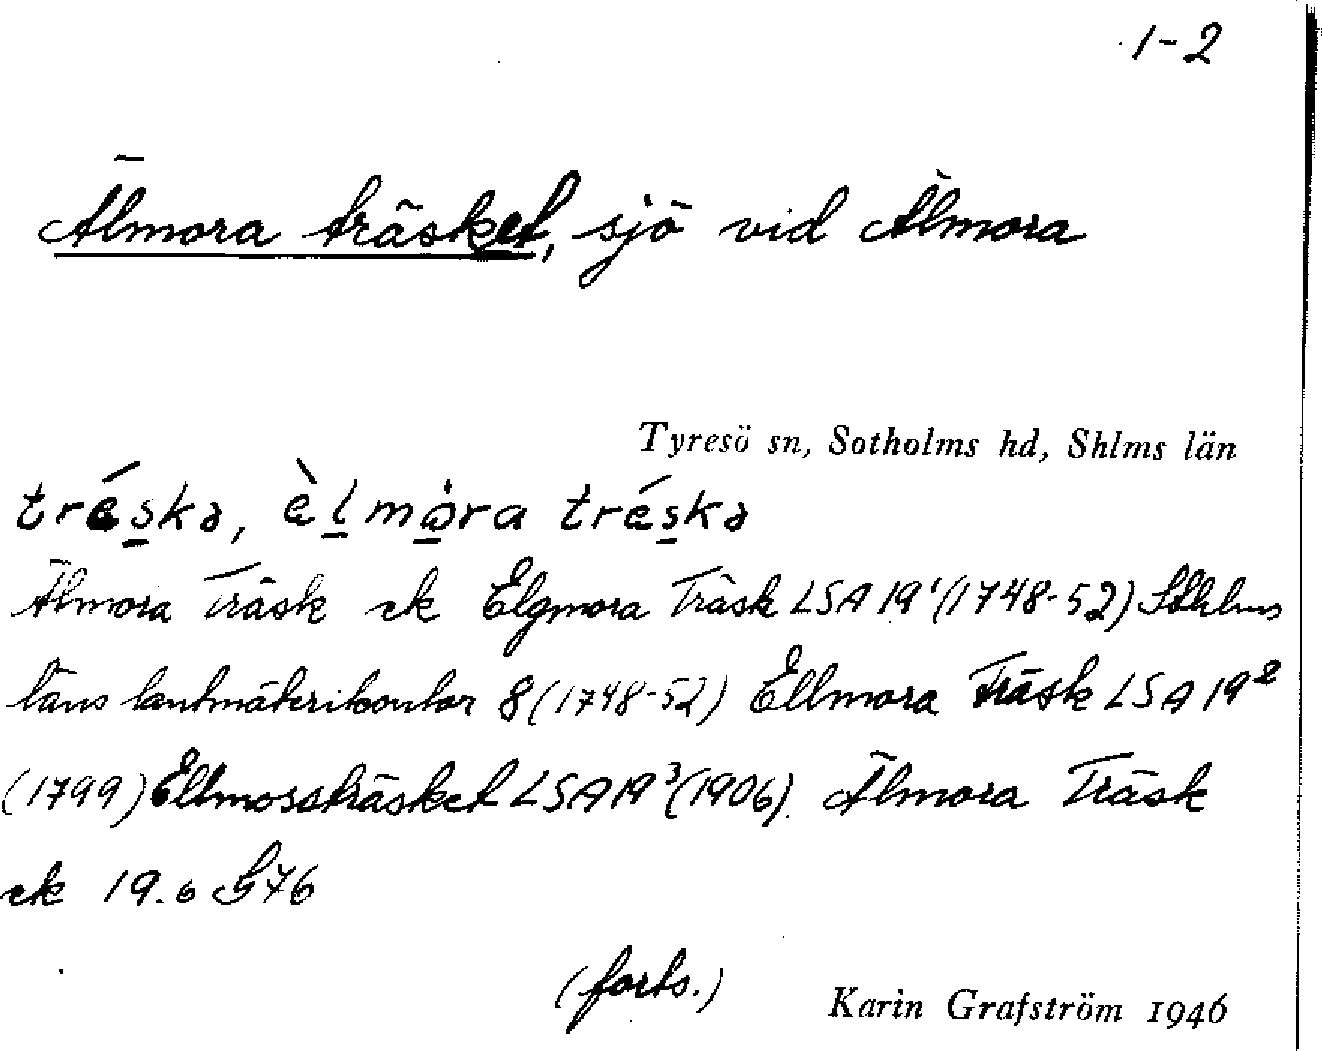 1-2
Älmora träsket, sjö vid Älmora
Tyresö sn, Sotholms hd, Shlms län
tréska, èlmȧra tréska
Älmora Träsk ek Elgmora Träsk LSA 19¹ (1748-52) Sthlms
läns lantmäterikontor 8 (1748-52) Ellmora Träsk LSA 19²
(1799) Ellmoraträsket LSA 19³ (1906). Älmora Träsk
ek 19.6 G76
(forts.)
Karin Grafström 1946